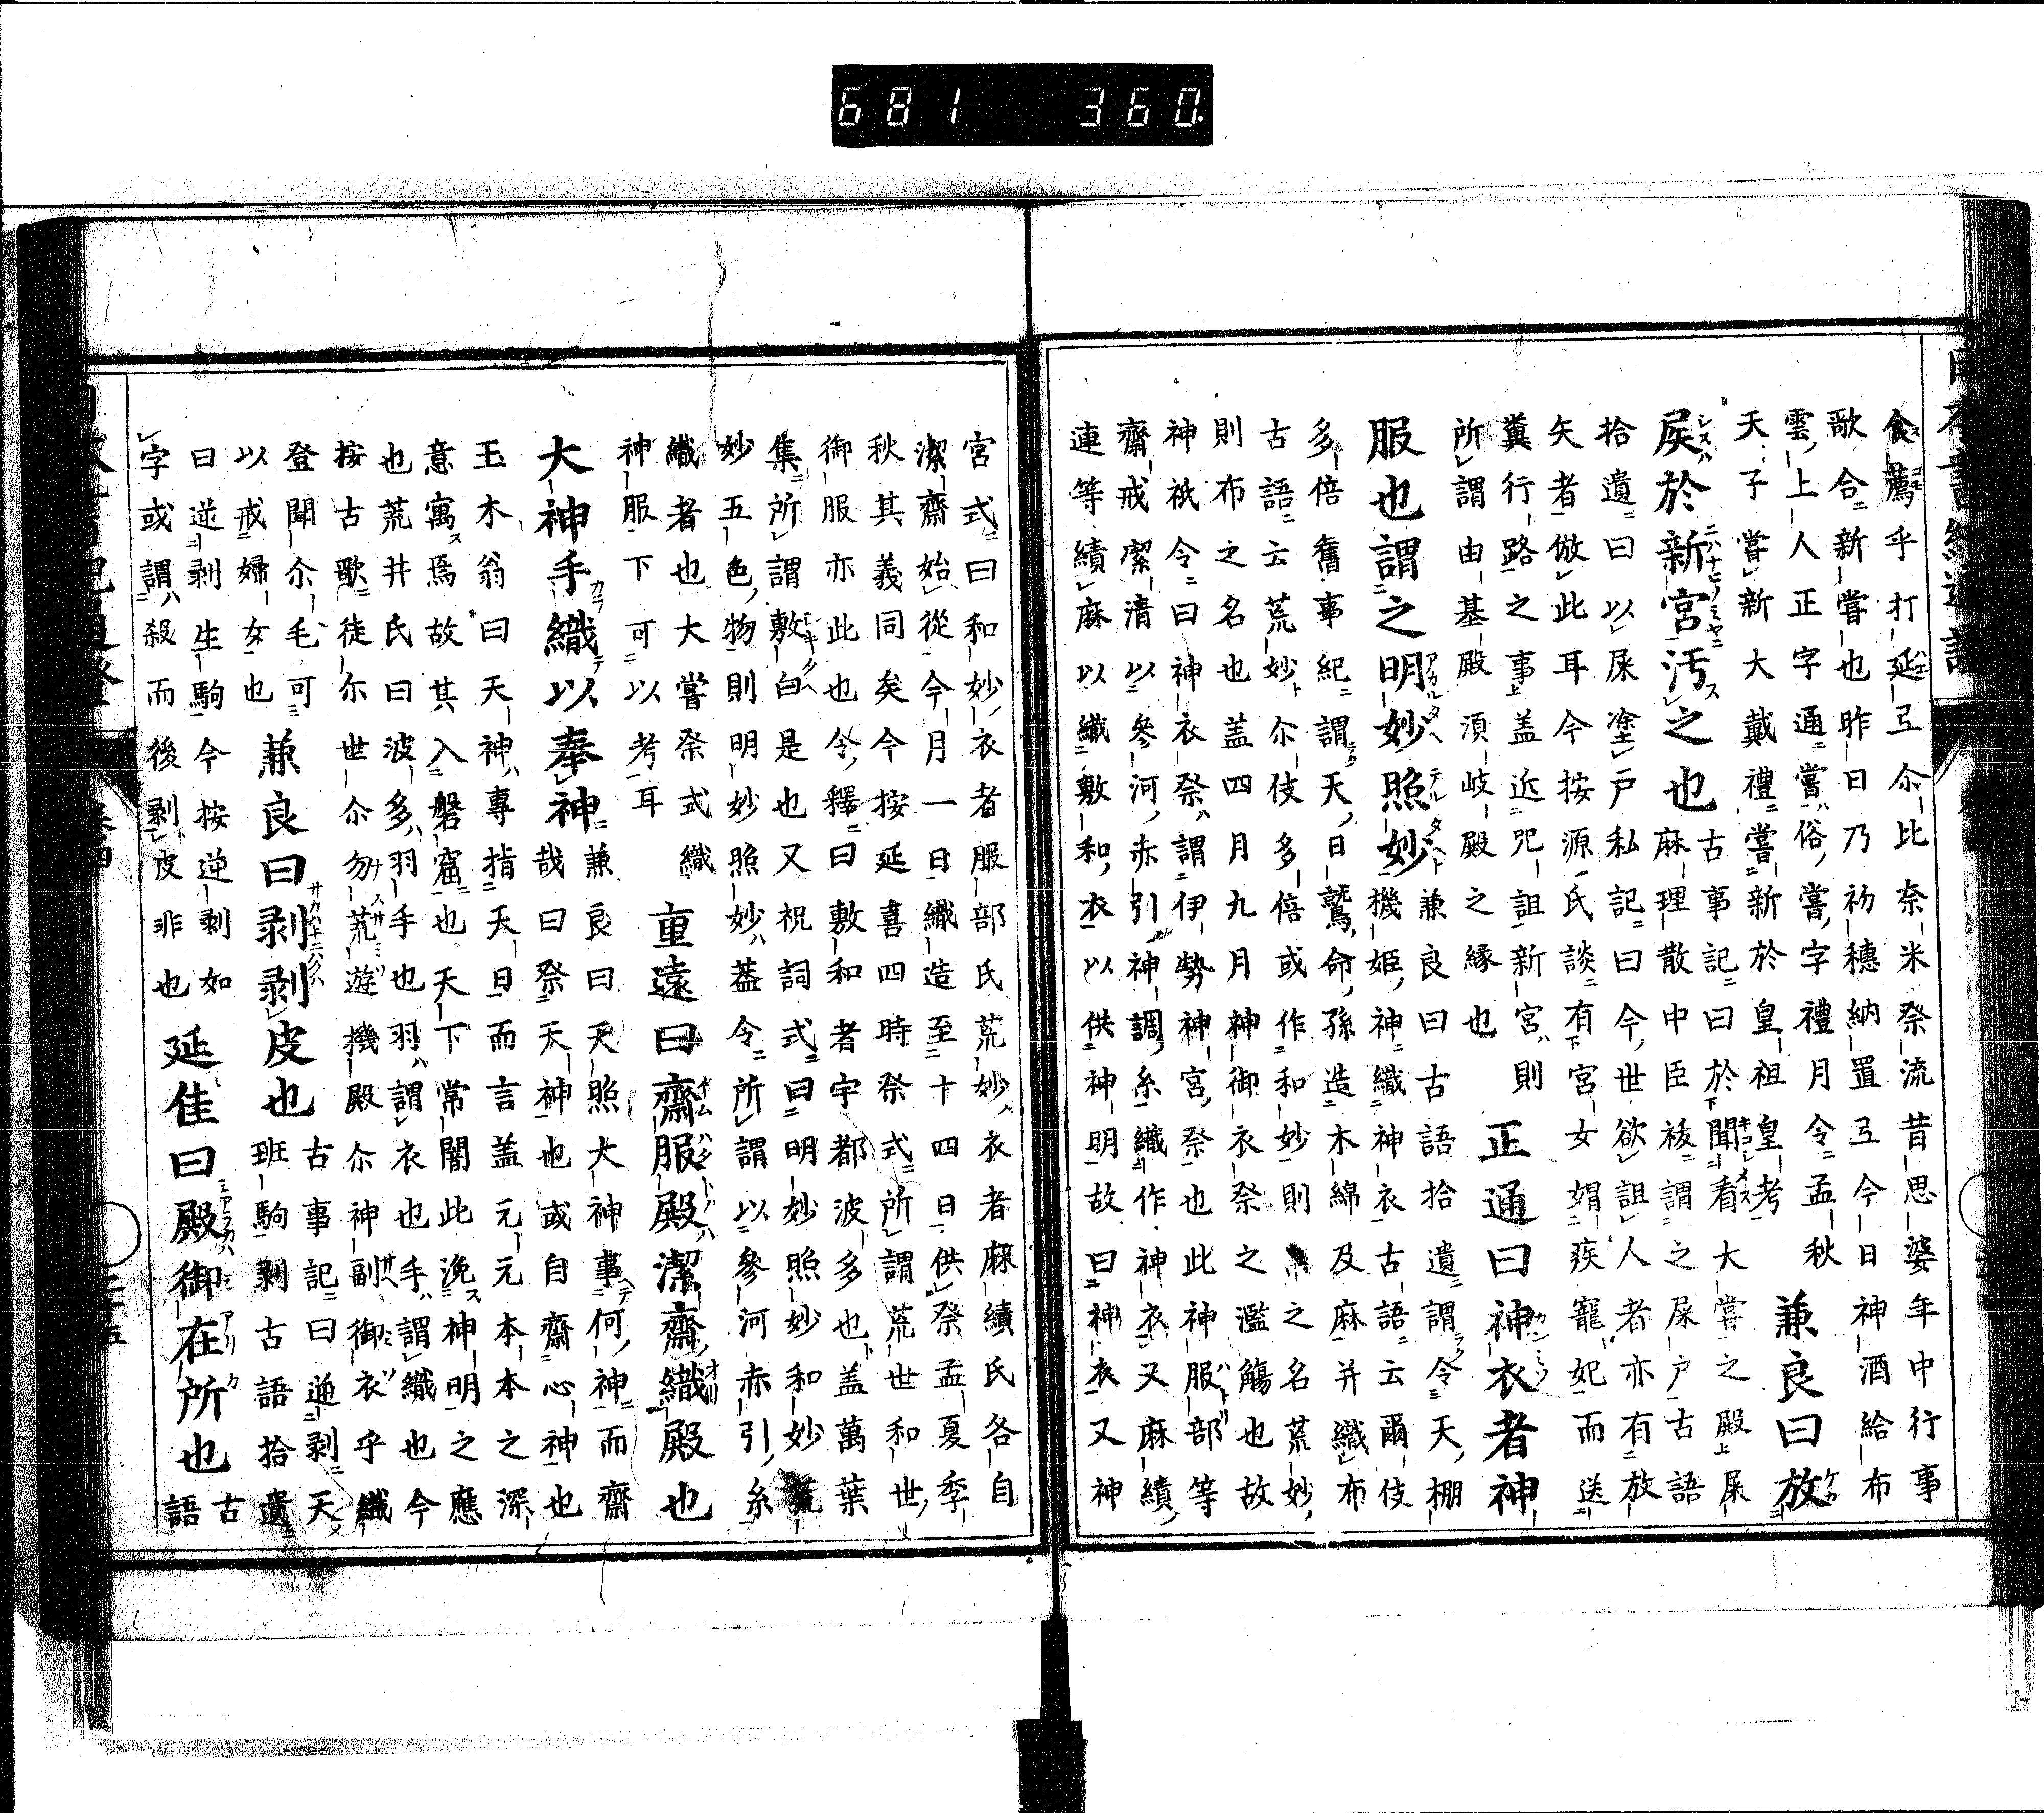 681 360
食薦乎打延弖尒比奈米祭流昔思婆年中行事
歌合新嘗也昨日乃初穗納置弖今日神酒給布
雲上人正字通嘗俗嘗字禮月令孟秋
天子嘗新大戴禮嘗新於皇祖皇考
兼良曰放
屎於新宮汚之也
古事記曰於聞看大嘗之殿屎
麻理散中臣祓謂之屎戸古語
拾遺曰以屎塗戸私記曰今世欲詛人者亦有放
矢者倣此耳今按源氏談有宮女娟疾寵妃而送
糞行路之事盖近咒詛新宮則
所謂由基殿湏岐殿之緣也
正通曰神衣者神
服也謂之明妙照妙
兼良曰古語拾遺謂令天棚
機姬神織神衣古語云爾伎
多倍舊事紀謂天日鷲命孫造木綿及麻并織布
古語云荒妙尒伎多倍或作和妙則之名荒妙
則布之名也盖四月九月神御衣祭之濫觴也故
神祇令曰神衣祭謂伊勢神宮祭也此神服部等
齋戒潔清以參河赤引神調糸織作神衣又麻績
連等績麻以織敷和衣以供神明故曰神衣又神
宮式曰和妙衣者服部氏荒妙衣者麻績氏各自
潔齋始從今月一日織造至十四日供祭孟夏季
秋其義同矣今按延喜四時祭式所謂荒世和世
御服亦此也令釋曰敷和者宇都波多也盖萬葉
集所謂敷白是也又祝詞式曰明妙照妙和妙荒
妙五色物則明妙照妙盖令所謂以參河赤引糸
織者也大嘗祭式織
神服下可以考耳
重遠曰齋服殿潔齋織殿也
大神手織以奉神
兼良曰天照大神事何神而齋
哉曰祭天神也或自齋心神也
玉木翁曰天神專指天日而言盖元元本本之深
意寓焉故其入磐窟也天下常闇此浼神明之應
也荒井氏曰波多羽手也羽謂衣也手謂織也今
按古歌徒尒世尒勿荒遊機殿尒神副御衣乎織
登聞尒毛可
以戒婦女也
兼良曰剥剥皮也
古事記曰逆剥天
班駒剥古語拾遺
曰逆剥生駒今按逆剥如
字或謂殺而後剥皮非也
延佳曰殿御在所也
古
語